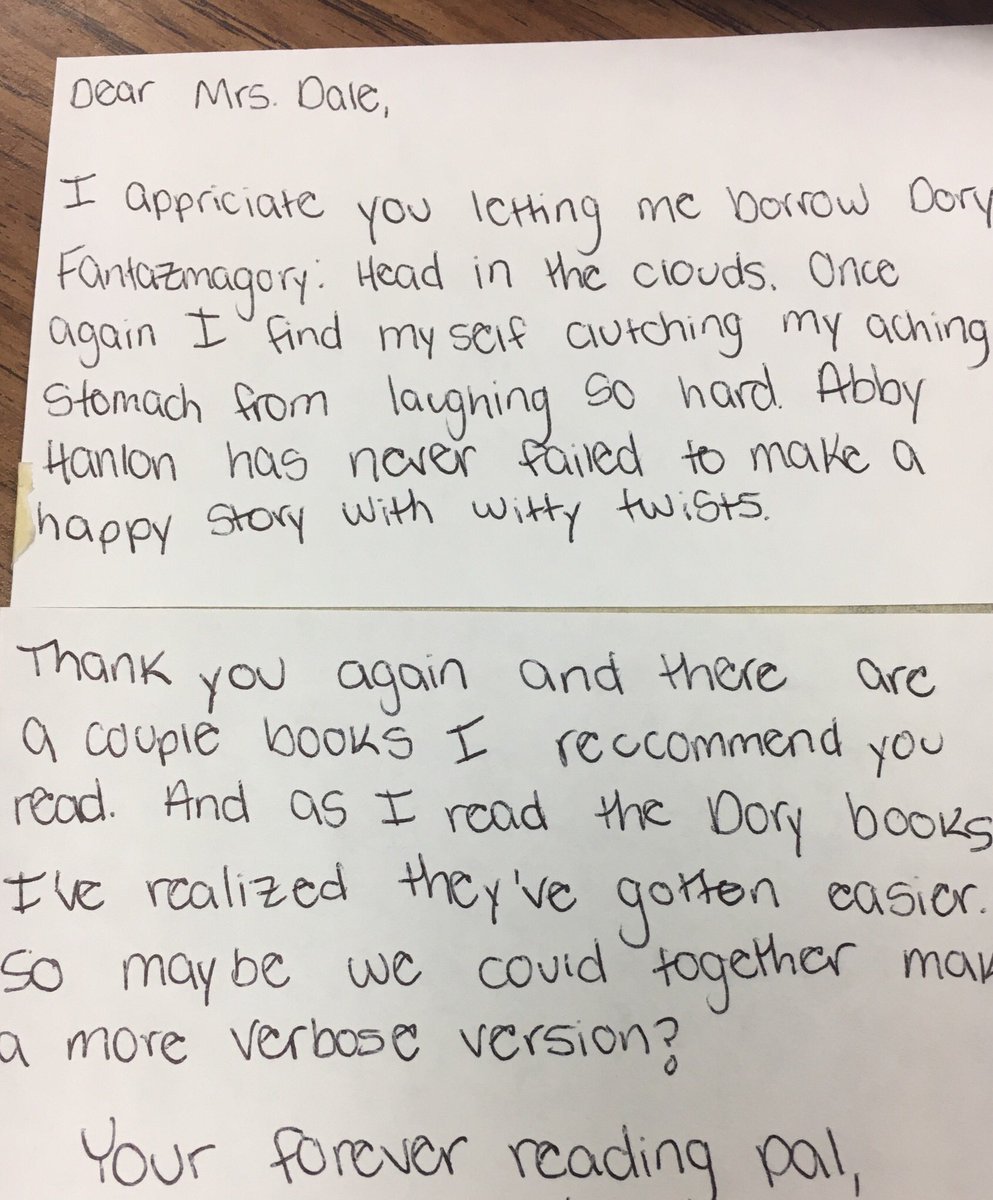 Dear Mrs. Dale,
I appriciate you letting me borrow Dory
Fantazmagory: Head in the clouds. Once
again I find myself clutching my aching
stomach from laughing so hard. Abby
Hanlon has never failed to make a
happy story with witty twists.
Thank you again and there are
a couple books I reccommend you
read. And as I read the Dory books
I've realized they've gotten easier.
So maybe we could together mak
a more verbose version?
Your forever reading pal,